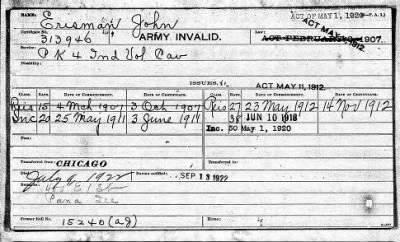 NAME: Erisman John ACT OF MAY 1, 1920
Certificate No. 313946 ARMY INVALID. ACT MAY 11, 1912.
Service P K 4 Ind Vol Cav ACT FEBRUARY 6, 1907.
Disability:
ISSUES. ACT MAY 11, 1912.
CLASS. RATE. DATE OF COMMENCEMENT. DATE OF CERTIFICATE. CLASS. RATE. DATE OF COMMENCEMENT. DATE OF CERTIFICATE.
15 4 Mch 1907 3 Oct 1907 27 23 May 1912 14 Nov 1912
Inc 20 25 May 1911 3 June 1911 JUN 10 1918
Inc. 50 May 1, 1920
Transferred from CHICAGO Transferred from
Died July 9, 1922 Bureau notified SEP 13 1922
Pana Ill
Former Roll No. 15240 (ag) Home